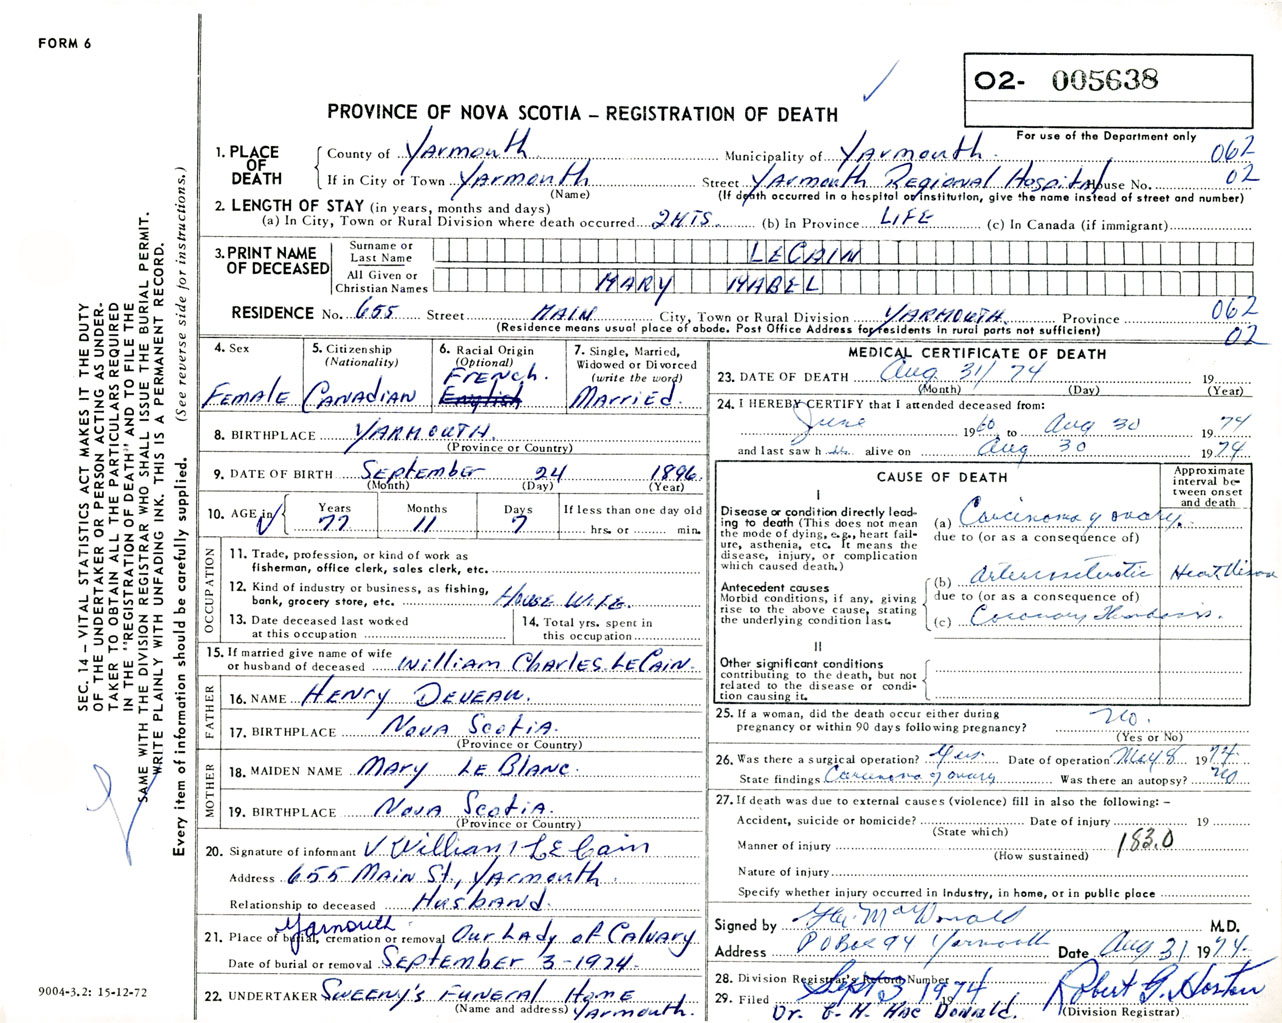 FORM 6
O2- 005638
PROVINCE OF NOVA SCOTIA – REGISTRATION OF DEATH
For use of the Department only
1. PLACE OF DEATH
County of Yarmouth Municipality of Yarmouth 062
If in City or Town Yarmouth Street Yarmouth Regional Hospital House No. 02
(Name) (If death occurred in a hospital or institution, give the name instead of street and number)
2. LENGTH OF STAY (in years, months and days)
(a) In City, Town or Rural Division where death occurred (b) In Province LIFE (c) In Canada (if immigrant)
3. PRINT NAME OF DECEASED
Surname or Last Name LECAIN
All Given or Christian Names MARY MABEL
RESIDENCE No. 655 Street MAIN City, Town or Rural Division YARMOUTH. Province 062
(Residence means usual place of abode. Post Office Address for residents in rural parts not sufficient) 02
4. Sex
Female
5. Citizenship
(Nationality)
Canadian
6. Racial Origin
(Optional)
French.
English
7. Single, Married,
Widowed or Divorced
(write the word)
Married.
8. BIRTHPLACE YARMOUTH.
(Province or Country)
9. DATE OF BIRTH September 24 1896
(Month) (Day) (Year)
10. AGE in Years Months Days If less than one day old
77 11 7 hrs. or min.
OCCUPATION
11. Trade, profession, or kind of work as
fisherman, office clerk, sales clerk, etc.
12. Kind of industry or business, as fishing,
bank, grocery store, etc. House Wife.
13. Date deceased last worked
at this occupation
14. Total yrs. spent in
this occupation
15. If married give name of wife
or husband of deceased William Charles LeCain.
FATHER
16. NAME Henry Deveau.
17. BIRTHPLACE Nova Scotia.
(Province or Country)
MOTHER
18. MAIDEN NAME Mary Le Blanc.
19. BIRTHPLACE Nova Scotia.
(Province or Country)
20. Signature of informant William LeCain
Address 655 Main St., Yarmouth
Relationship to deceased Husband.
Yarmouth
21. Place of burial, cremation or removal Our Lady of Calvary
Date of burial or removal September 3-1974.
22. UNDERTAKER Sweeny's Funeral Home
(Name and address) Yarmouth.
MEDICAL CERTIFICATE OF DEATH
23. DATE OF DEATH Aug 31/74 19
(Month) (Day) (Year)
24. I HEREBY CERTIFY that I attended deceased from:
June 1960 to Aug 30 1974
and last saw h alive on Aug 30 1974
CAUSE OF DEATH
Approximate interval between onset and death
I
Disease or condition directly leading to death (This does not mean the mode of dying, e.g., heart failure, asthenia, etc. It means the disease, injury, or complication which caused death.)
(a) Carcinoma of ovary.
due to (or as a consequence of)
Antecedent causes
Morbid conditions, if any, giving rise to the above cause, stating the underlying condition last.
(b) Arteriosclerotic Heart Disease
due to (or as a consequence of)
(c) Coronary Thrombosis.
II
Other significant conditions
contributing to the death, but not
related to the disease or condi-
tion causing it.
25. If a woman, did the death occur either during
pregnancy or within 90 days following pregnancy? no.
(Yes or No)
26. Was there a surgical operation? Yes Date of operation May 8 1974
State findings Carcinoma of ovary Was there an autopsy? no
27. If death was due to external causes (violence) fill in also the following: –
Accident, suicide or homicide? Date of injury 19
(State which)
Manner of injury 183.0
(How sustained)
Nature of injury
Specify whether injury occurred in Industry, in home, or in public place
Signed by MacDonald M.D.
Address P O Box 94 Yarmouth Date Aug 31 1974.
28. Division Registrar's Record Number
29. Filed Sept 3 1974 19 Robert G. Horton
Dr. E. H. Mac Donald. (Division Registrar)
SEC. 14 – VITAL STATISTICS ACT MAKES IT THE DUTY
OF THE UNDERTAKER OR PERSON ACTING AS UNDER-
TAKER TO OBTAIN ALL THE PARTICULARS REQUIRED
IN THE "REGISTRATION OF DEATH" AND TO FILE THE
SAME WITH THE DIVISION REGISTRAR WHO SHALL ISSUE THE BURIAL PERMIT.
WRITE PLAINLY WITH UNFADING INK. THIS IS A PERMANENT RECORD.
Every item of information should be carefully supplied. (See reverse side for instructions.)
9004-3.2: 15-12-72